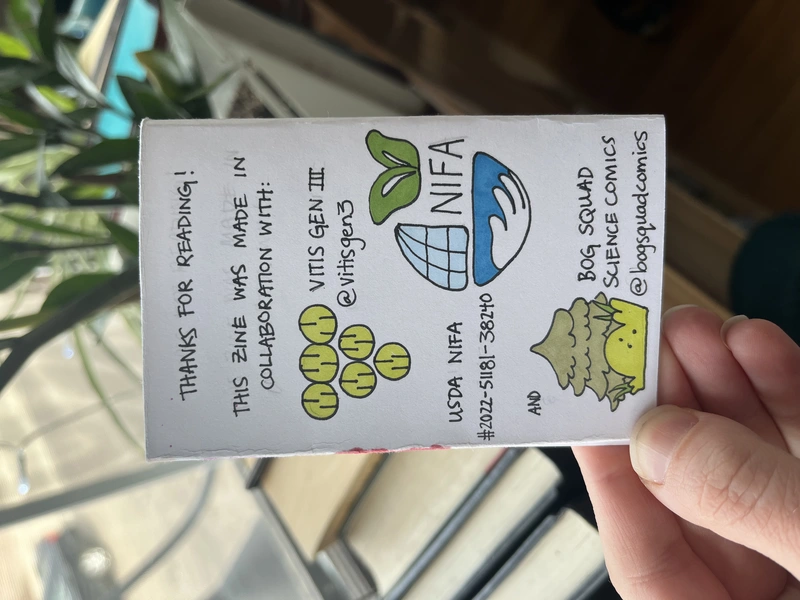 THANKS FOR READING!
THIS ZINE WAS MADE IN
COLLABORATION WITH:
VITIS GEN III
@vitisgen3
USDA NIFA
#2022-51181-38240
NIFA
AND
BOG SQUAD
SCIENCE COMICS
@bogsquadcomics